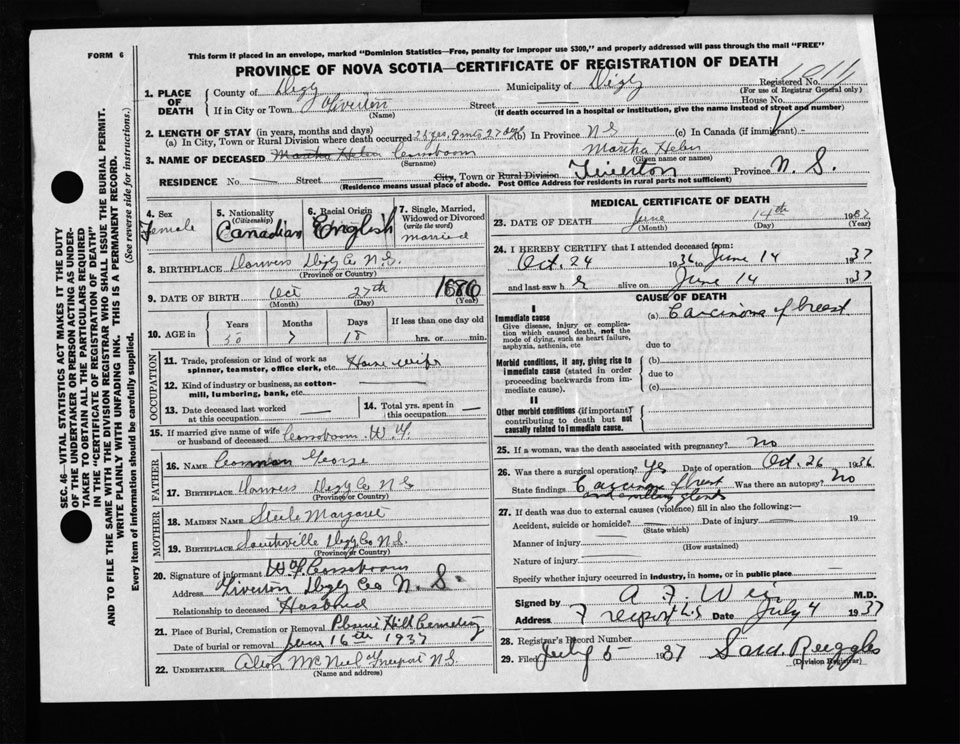 FORM 6
This form if placed in an envelope, marked "Dominion Statistics—Free, penalty for improper use $300," and properly addressed will pass through the mail "FREE"
PROVINCE OF NOVA SCOTIA—CERTIFICATE OF REGISTRATION OF DEATH
SEC. 46—VITAL STATISTICS ACT MAKES IT THE DUTY
OF THE UNDERTAKER OR PERSON ACTING AS UNDER-
TAKER TO OBTAIN ALL THE PARTICULARS REQUIRED
IN THE "CERTIFICATE OF REGISTRATION OF DEATH"
AND TO FILE THE SAME WITH THE DIVISION REGISTRAR WHO SHALL ISSUE THE BURIAL PERMIT.
WRITE PLAINLY WITH UNFADING INK. THIS IS A PERMANENT RECORD.
Every item of information should be carefully supplied. (See reverse side for instructions.)
1. PLACE OF DEATH County of Digby Municipality of Digby Registered No.
(For use of Registrar General only)
If in City or Town Tiverton (Name) Street House No.
(If death occurred in a hospital or institution, give the name instead of street and number)
2. LENGTH OF STAY (in years, months and days)
(a) In City, Town or Rural Division where death occurred 25 yrs, 9 mts 27 (b) In Province N S (c) In Canada (if immigrant)
3. NAME OF DECEASED Martha Helen Cossboom (Surname) Martha Helen (Given name or names)
RESIDENCE No. Street City, Town or Rural Division Tiverton Province N. S.
(Residence means usual place of abode. Post Office Address for residents in rural parts not sufficient)
4. Sex Female
5. Nationality (Citizenship) Canadian
6. Racial Origin English
7. Single, Married, Widowed or Divorced (write the word) married
8. BIRTHPLACE Danvers Digby Co N.S. (Province or Country)
9. DATE OF BIRTH Oct (Month) 27th (Day) 1886 (Year)
10. AGE in Years 50 Months 7 Days 18 If less than one day old hrs. or min.
OCCUPATION
11. Trade, profession or kind of work as spinner, teamster, office clerk, etc. House wife
12. Kind of industry or business, as cotton-mill, lumbering, bank, etc.
13. Date deceased last worked at this occupation
14. Total yrs. spent in this occupation
15. If married give name of wife or husband of deceased Cossboom W. Y.
FATHER
16. NAME George
17. BIRTHPLACE Danvers Digby Co N S (Province or Country)
MOTHER
18. MAIDEN NAME Steele Margaret
19. BIRTHPLACE Southville Digby Co N.S. (Province or Country)
20. Signature of informant W Y Cossboom
Address Tiverton Digby Co N. S.
Relationship to deceased Husband
21. Place of Burial, Cremation or Removal Hill Cemetery
Date of burial or removal June 16th 1937
22. UNDERTAKER McNeil Freeport N.S.
(Name and address)
MEDICAL CERTIFICATE OF DEATH
23. DATE OF DEATH June (Month) 14th (Day) 1937 (Year)
24. I HEREBY CERTIFY that I attended deceased from:
Oct. 24 1936 to June 14 1937
and last saw h er alive on June 14 1937
CAUSE OF DEATH
I
Immediate cause (a) Carcinoma of breast
Give disease, injury or complication which caused death, not the mode of dying, such as heart failure, asphyxia, asthenia, etc
due to
Morbid conditions, if any, giving rise to immediate cause (stated in order proceeding backwards from immediate cause).
(b)
due to
(c)
II
Other morbid conditions (if important) contributing to death but not causally related to immediate cause.
25. If a woman, was the death associated with pregnancy? No
26. Was there a surgical operation? Yes Date of operation Oct. 26 1936
State findings Carcinoma of breast and axillary glands Was there an autopsy? No
27. If death was due to external causes (violence) fill in also the following:—
Accident, suicide or homicide? (State which) Date of injury 19
Manner of injury (How sustained)
Nature of injury
Specify whether injury occurred in industry, in home, or in public place
Signed by A F Weir M.D.
Address Freeport N.S Date July 4 1937
28. Registrar's Record Number
29. Filed July 5 1937 Ruggles
(Division Registrar)